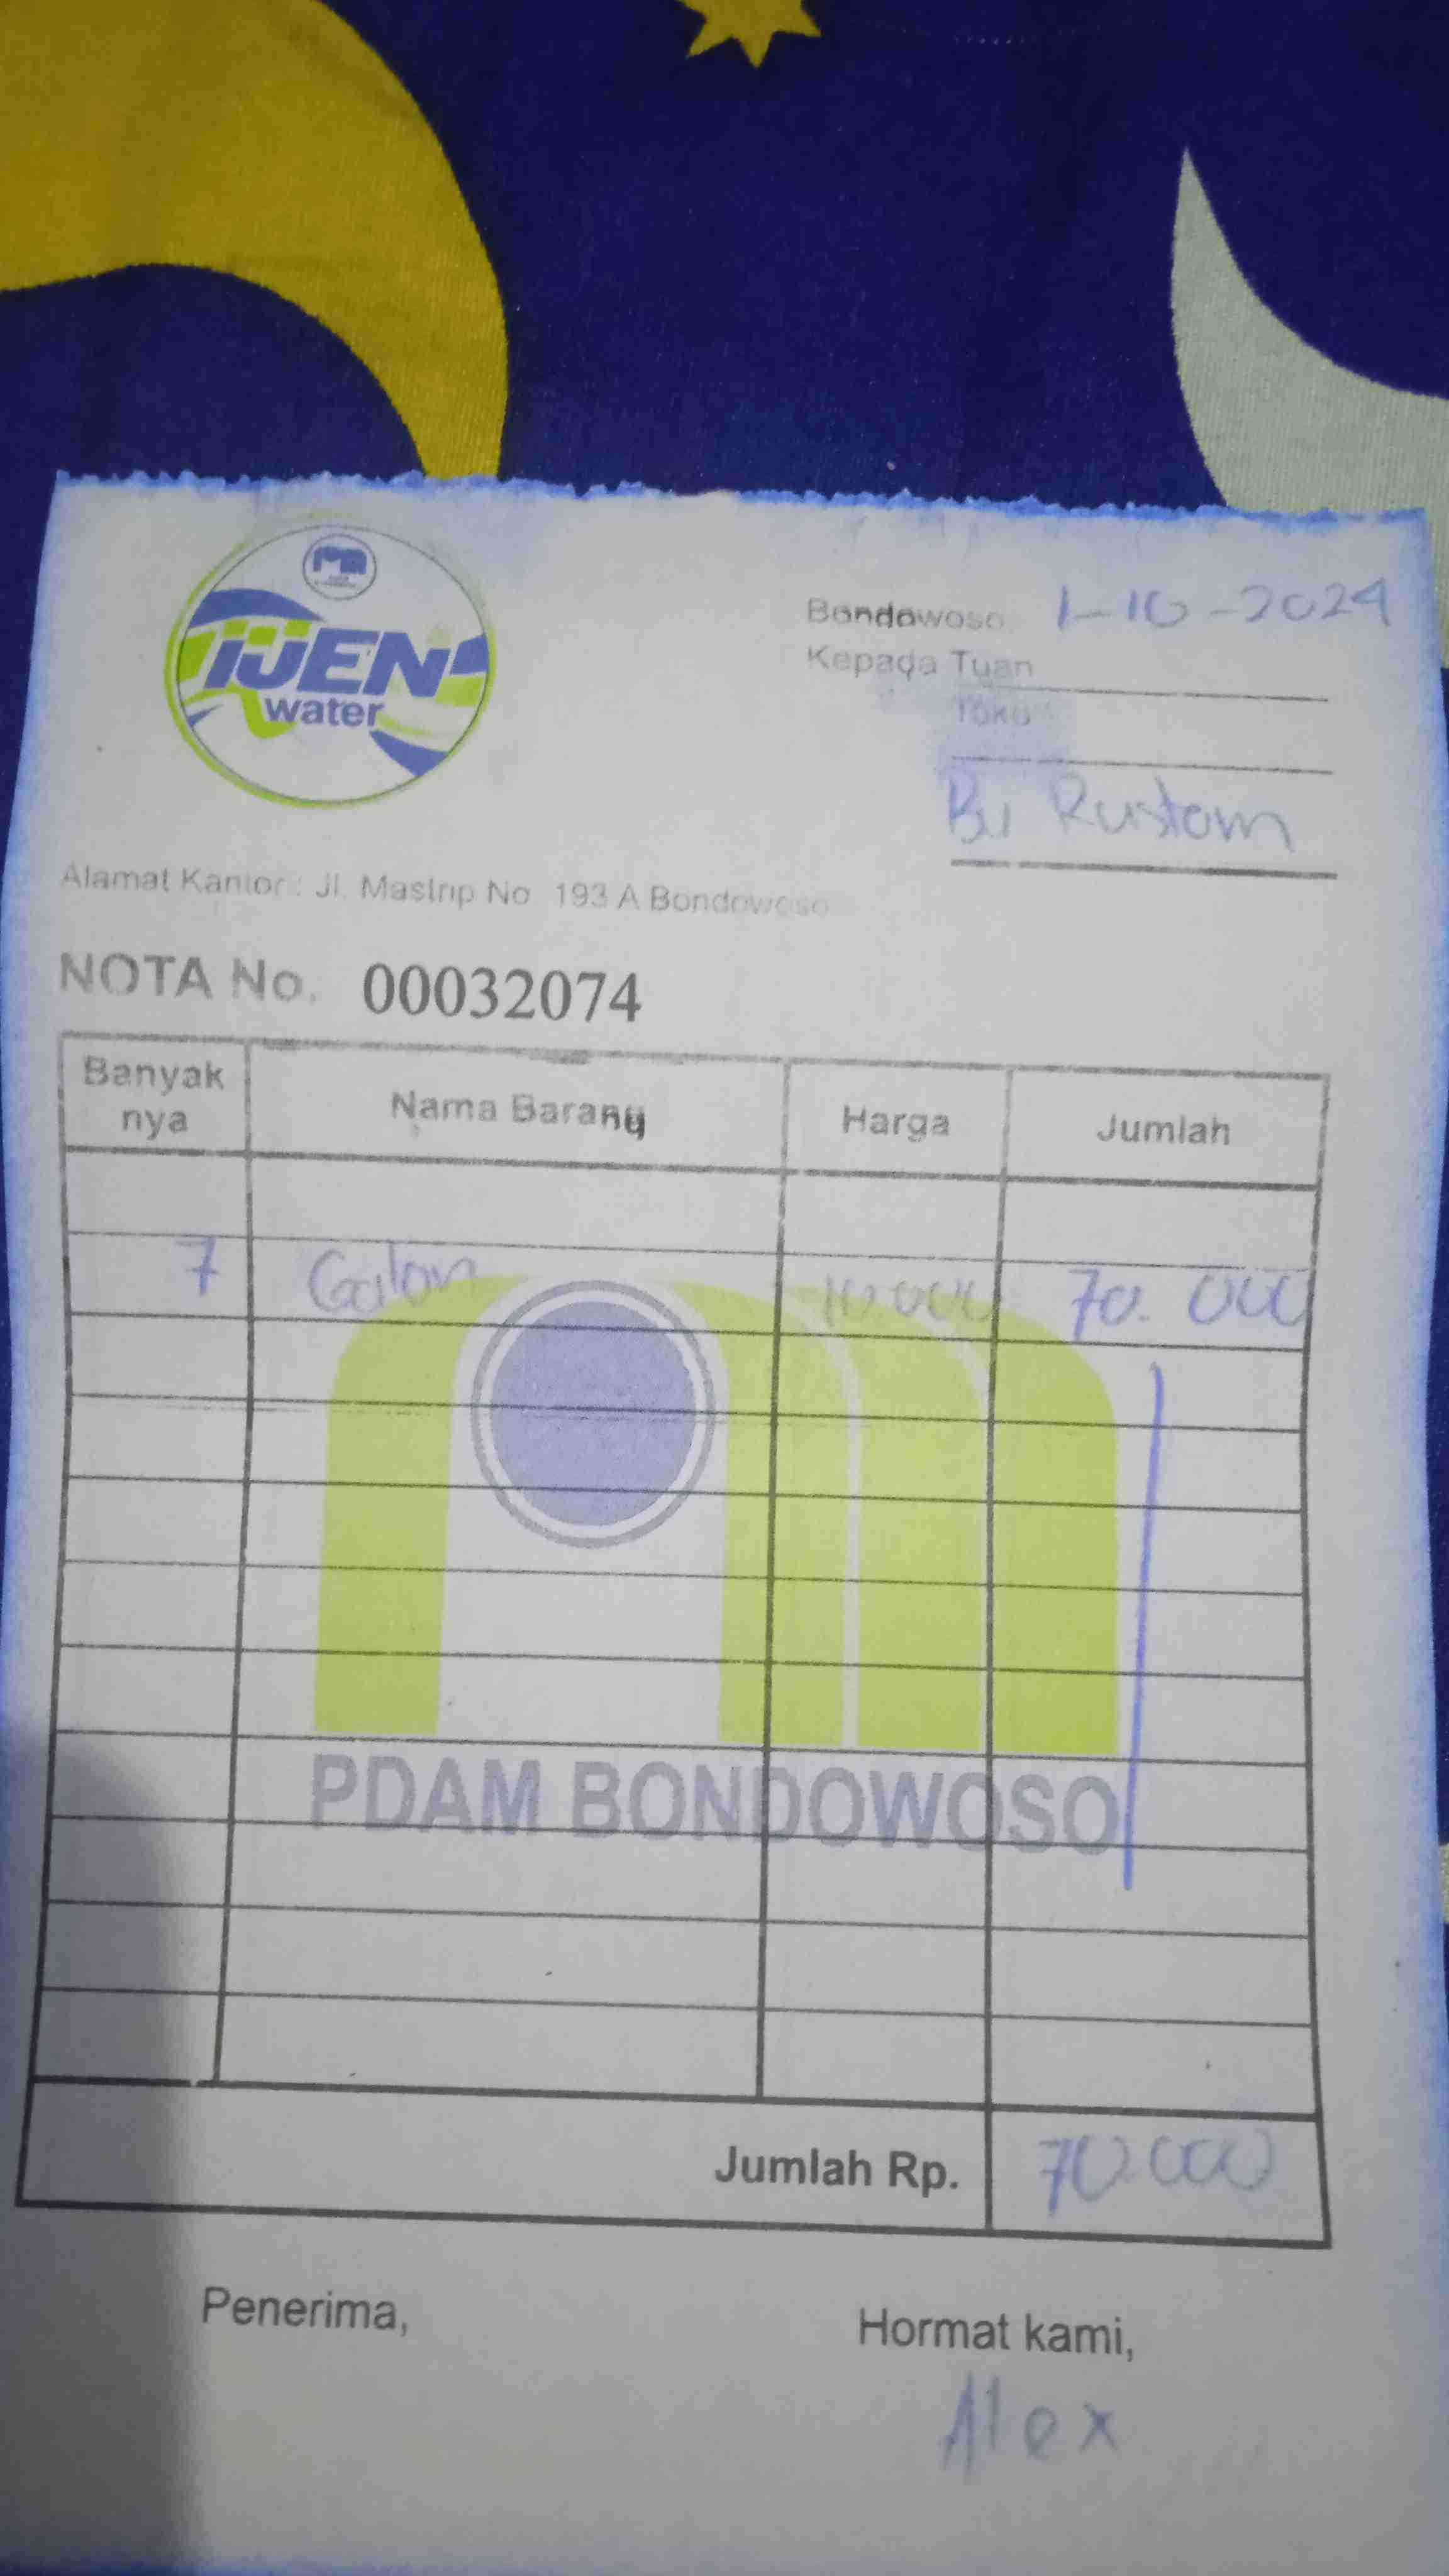 IJEN
water
Bondowoso 1-10-2024
Kepada Tuan
Toko
Bu Rustam
Alamat Kantor : Jl. Mastrip No. 193 A Bondowoso
NOTA No. 00032074
Banyak nya Nama Barang Harga Jumlah
7 Galon 10.000 70.000
PDAM BONDOWOSO
Jumlah Rp. 70.000
Penerima, Hormat kami,
Alex